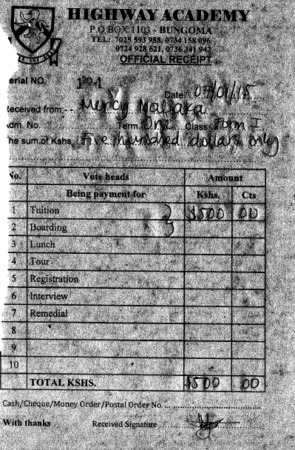 HIGHWAY ACADEMY
P.O BOX 1103 - BUNGOMA
TEL: 7025 593 988, 0734 158 096
0724 928 621, 0736 341 942
OFFICIAL RECEIPT
erial NO. 191
Date 07/01/15
eceived from:- Mercy
dm. No. Term Class Form I
The sum of Kshs. Five hundred dollars only
No. Vote heads Amount
Being payment for Kshs. Cts
1 Tuition $500 00
2 Boarding
3 Lunch
4 Tour
5 Registration
6 Interview
7 Remedial
8
9
10
TOTAL KSHS. $500 00
Cash/Cheque/Money Order/Postal Order No.
With thanks Received Signature